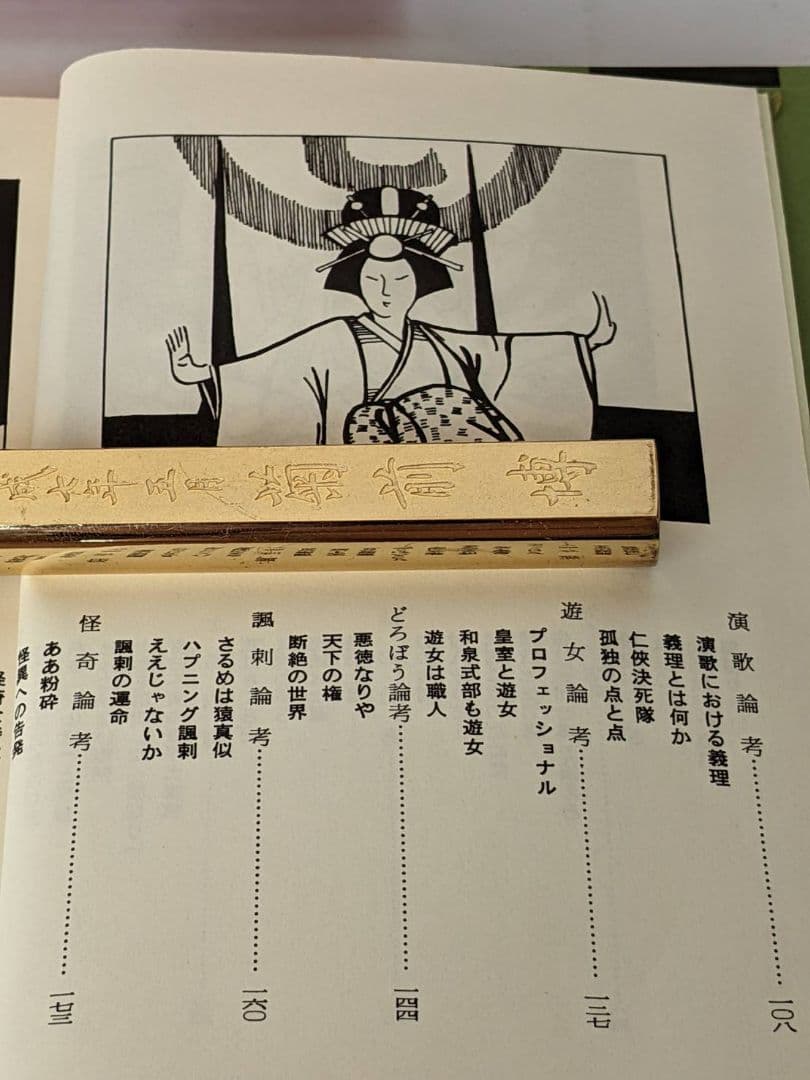 演歌論考……一〇八
演歌における義理
義理とは何か
仁俠決死隊
孤独の点と点
遊女論考……一二七
プロフェッショナル
皇室と遊女
和泉式部も遊女
遊女は職人
どろぼう論考……一四四
悪徳なりや
天下の権
断絶の世界
諷刺論考……一六〇
さるめは猿真似
ハプニング諷刺
ええじゃないか
諷刺の運命
怪奇論考……一七三
ああ粉砕
怪異への告発